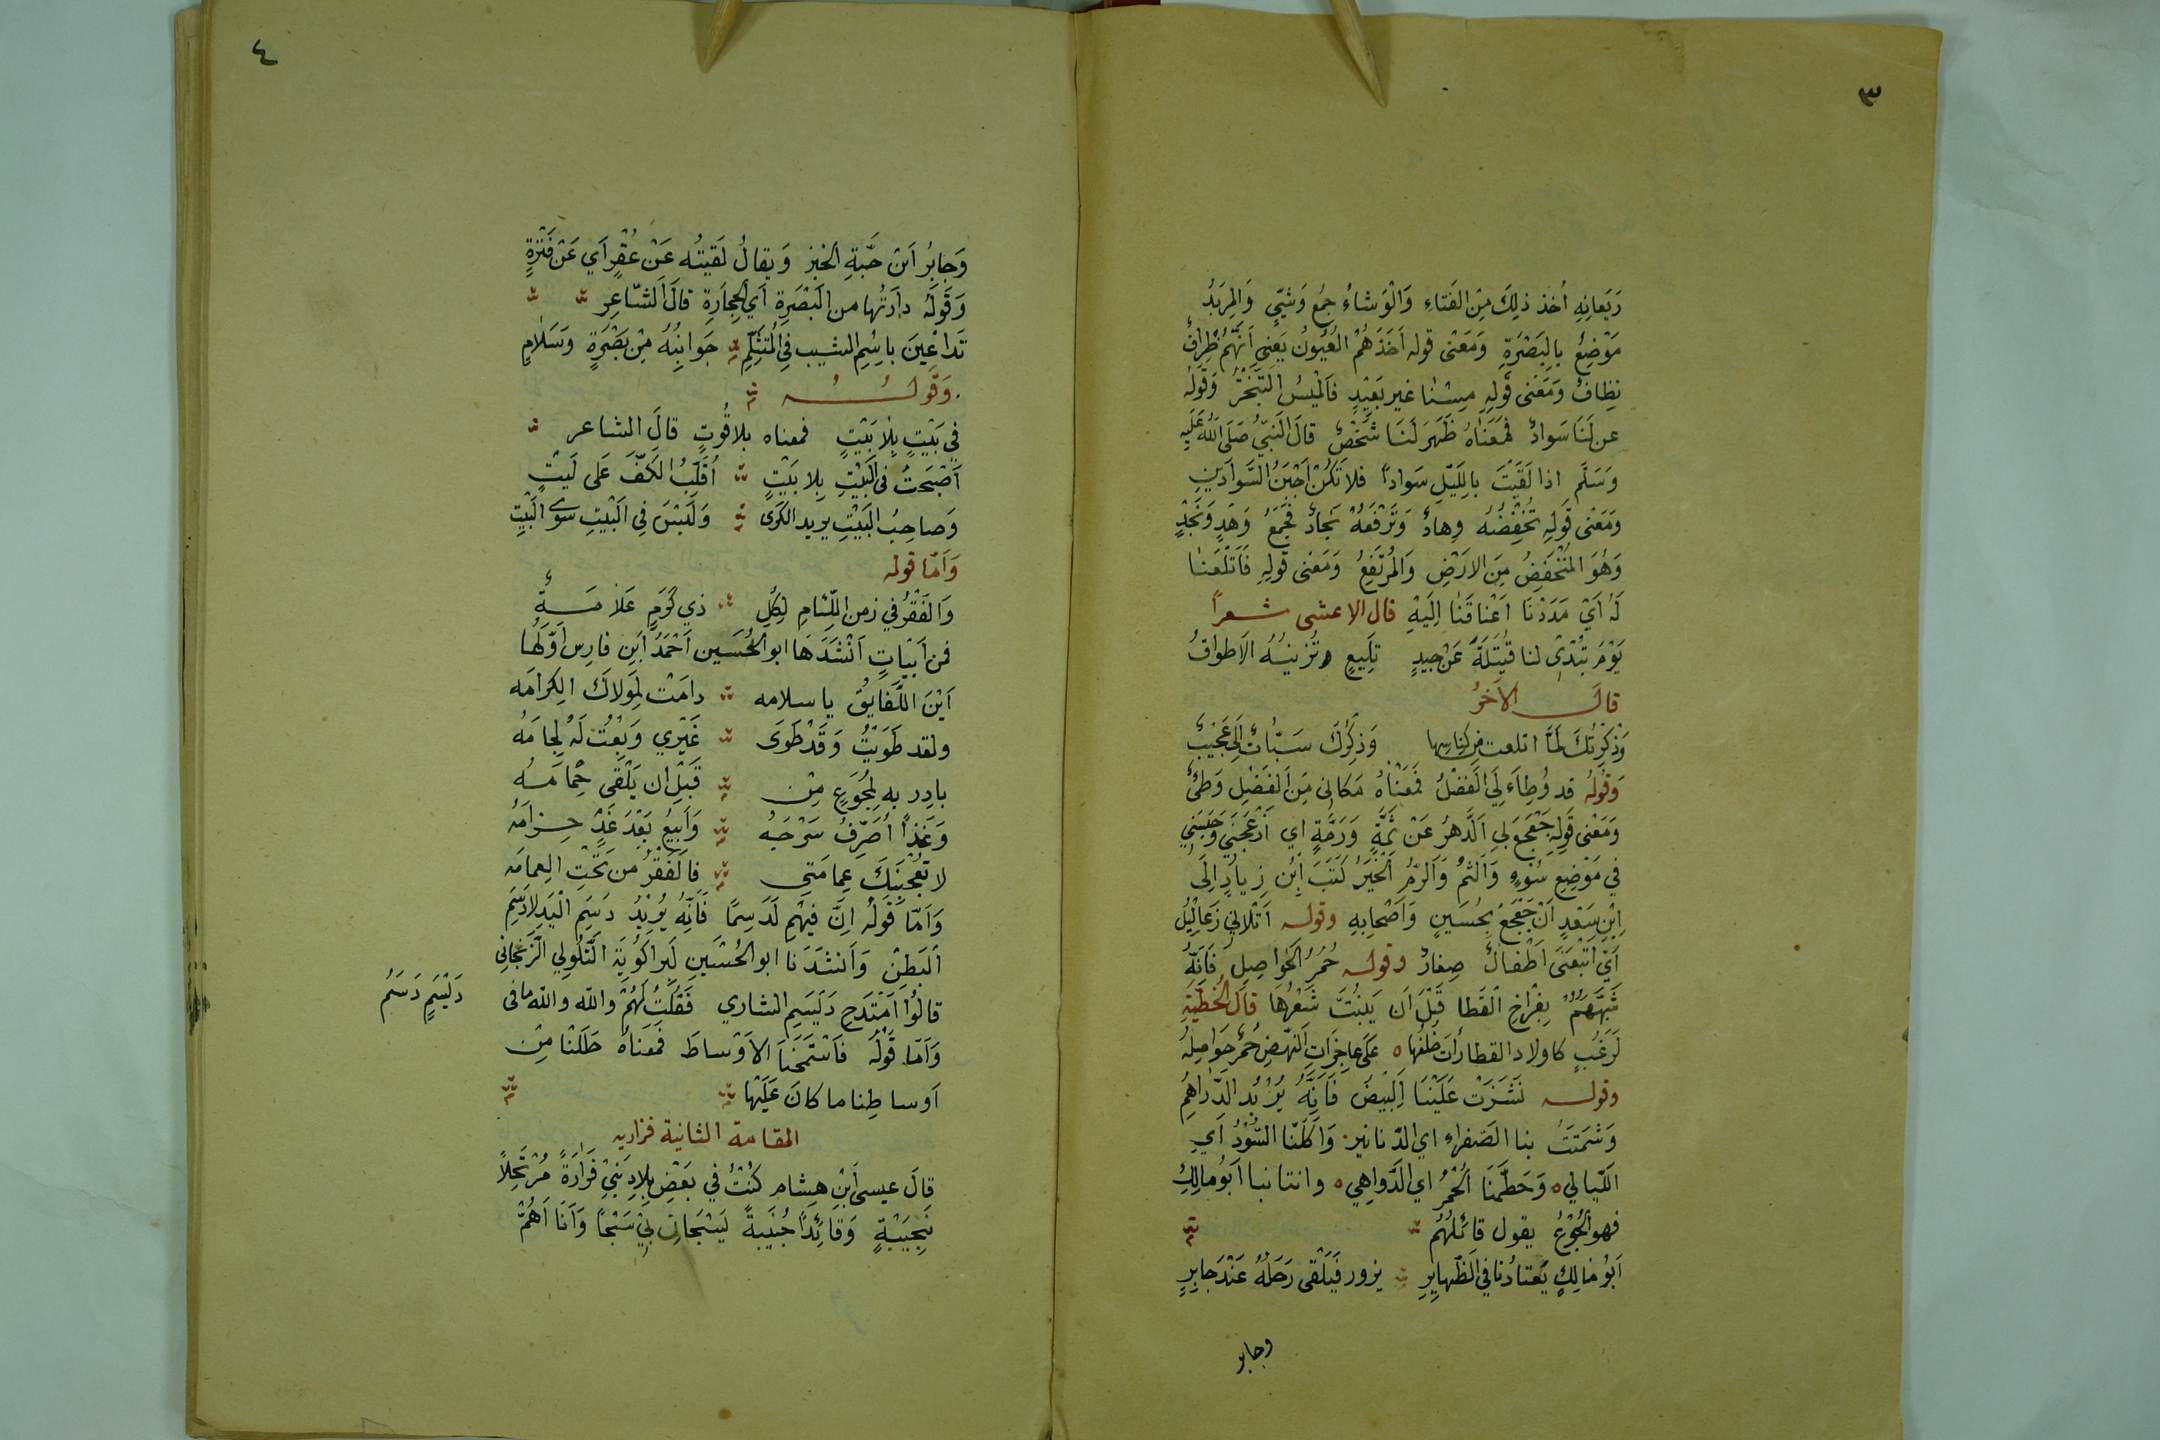 ٣
رَيَعانِهِ أُخذ ذلِكَ مِنَ الفَتاءِ وَالْوَشاءُ جمع وَشيٍ وَالمِرَبَدُ
مَوْضِعٌ بِالبَصْرَةِ وَمَعْنى قوله اَخَذَهُمُ العُيُونُ يَعني اَنَّهُم ظِرافٌ
نِظِافٌ وَمَعنى قَولِهِ مِسْنا غير بَعيْدٍ فَالمَيسُ التَّبَخْتُرُ وَقَولُهُ
عن لَنَا سَوادٌ فَمَعْناهُ ظَهَرَ لَنَا شَخْصٌ قالَ النَبيُّ صَلَى اللّٰهُ عَلَيهِ
وَسَلَّم اذا لَقَيْتَ بالِلَّيْلِ سَواداً فلا تَكُنْ اَجْبَنَ السَّوادَينِ
وَمَعْنى قَولِهِ تَخْفِضُهُ وِهادٌ وَتَرْفَعُهُ نِجادٌ فَجَمْعُ وَهْدٍ وَنَجْدٍ
وَهُوَ المُنْخَفِضُ مِنَ الارَضِ وَالمُرتَفِعُ وَمَعنى قَولِهِ فَاَتْلَعْنا
لَهُ اَيْ مَدَدْنَا اَعْناقَنا اِلَيْهِ قال الاعشى شعراً
يَوْمَ تُبْدى لنا قُتَيلَةُ عَنْ جيدٍ تَلِيعٍ تُزينُهُ الاَطواقُ
قالَ الآخرُ
وَذكرتكَ لَمَّا اتلعت مِن كِناسِها وَذِكْرُكَ سَبّاتٌ اِلَيَّ عَجيبُ
وَقَولُهُ قد وُطِاءَ لِيَ الفَضْلُ فَمَعْناهُ مَكانى مِنَ الفَضْلِ وَطئٌ
وَمَعْنى قَولِهِ جَعْجَعَ بي الدَّهرُ عَنْ ثمِّهِ وَرَمِّهِ اي ازعجَني وَحَبَسَني
في مَوْضِعِ سُوْءٍ وَالثمُّ وَالرَّمُ الخَيرُ كَتَبَ اِبْن زِيادٍ اِلى
اِبْنِ سَعْدٍ اَنْ جَعْجِعْ بِحُسَينٍ وَاَصْحابِهِ وقوله اَتْلاني زَعاليْلُ
اَيْ اتْبَعَنَى اَطْفالٌ صِغارٌ وقوله حُمْرُ الحَواصِلِ فَانَّهُ
شَبَّهَهُمْ بِفِراخِ القَطا قَبْلَ اَن يَنبُتَ شَعْرُها قالَ الحُطَيْئةِ
لَزغبٍ كاولاد القطا راث خلْفُها ٥ عَلى عاجزاتِ النهضِ حُمْرٍ حَواصِلهُ
وقوله نَشَزَتْ عَلَيْنَا البيضُ فَانَّهُ يُرْيدُ الدَّراهِمُ
وَشَمتَتْ بنا الصَفراء اي الدّنانير وَاَكَلَتْنا السُّوْدُ اَيِ
اللّيالي ٥ وَحَطَّمَنَا الحُمْرُ اي الدَّواهِي ٥ وانتابنا اَبُومالِكٍ
فهو الجُوْعُ يقول قائِلُهُم
اَبُو مَالِكٍ يَعتادُنا في الظهايِرِ يزور فَيَلْقى رَحلَهُ عَنْدَ جابِرٍ
وجابر
٤
وَجابِرُ اَبنُ حَبَّةِ الخبز وَيقالُ لَقيتُه عَنْ عُفْرٍ اَي عَنْ فَتْرَةٍ
وَقَولُهُ دارَتُها من البَصْرَةِ اَي الحِجارَةِ قالَ الشّاعِر
تَداعَيْنَ باسِمِ الشيب في المُتَثَلِّمِ جَوانِبُهُ مِنْ بَصْرَةٍ وَسَلامِ
وَقَولُهُ
في بَيْتٍ بِلا بَيْتٍ فمعناه بلا قُوتٍ قالَ الشاعر
اَصْبَحتُ فى البَيْتِ بِلا بَيْتِ اُقَلِّبُ الكَفَّ عَلى لَيتِ
وَصاحِبُ البَيْتِ يريد الكَرى وَلَيْسَ فِي البَيْتِ سِوى البَيْتِ
وَاَمّا قوله
وَالفَقْرُ في زمن اللِّئامِ لِكُلِّ ذي كَرَمٍ عَلامَةٌ
فمن اَبْياتٍ اَنْشَدَها ابو الحُسَين اَحْمَدُ اَبنِ فارِس اَوَّلُها
اَيْنَ اللَّفايُقِ يا سلامه دامَتْ لِمَولاكَ الكِرامَه
ولقد طَوَيْتُ وَقَدْ طَوَى غَيْري وَبِعْتُ لَهُ لِجامَهُ
بادِر بِهِ لِجُوعٍ مِنْ قَبْلِ ان يَلْقى حِمامَهُ
وَغَداً اُصَرِّفُ سَرْجَهُ وَاَبيعُ بَعْدَ غَدٍ حِزامَهُ
لا تُعْجِبَنكِ عِمامَتي فالفَقْرُ من تَحتِ العِمامَه
وَاَمّا قَولُهُ اِنَّ فيهِم لَدَسِمًا فَانّهُ يُريْدُ دَسَمِ اليَدِ لا دَسَمِ
البَطنِ وَاَنشَدَنا ابو الحُسَينِ لَبرا كوُيَة التَّلُولي الزَّنجاني
قالُوْا اَمْتَدَحِ دَيْسَمِ الشاري فَقُلتُ لَهُمْ واللّه واللّه ما فى دَيْسَمٍ دَسَمُ
وَاَمّا قَولُه فاَسْتَمَحْنَا الاَوْساطَ فَمَعناهُ حَلَلْنا مِنْ
اَوساطِنا ما كانَ عَلَيْها
المقامة الثانية فزاريه
قالَ عيسى اَبْنِ هِشام كُنْتُ في بَعْضِ بِلادِ بَني فَزارَةَ مُرْتَحِلاً
نَجِيْبَةٍ وَقائِدًا جُنَيبَةً يَسْبَحانِ بي سَبْحًا وَاَنَا اَهُمُّ